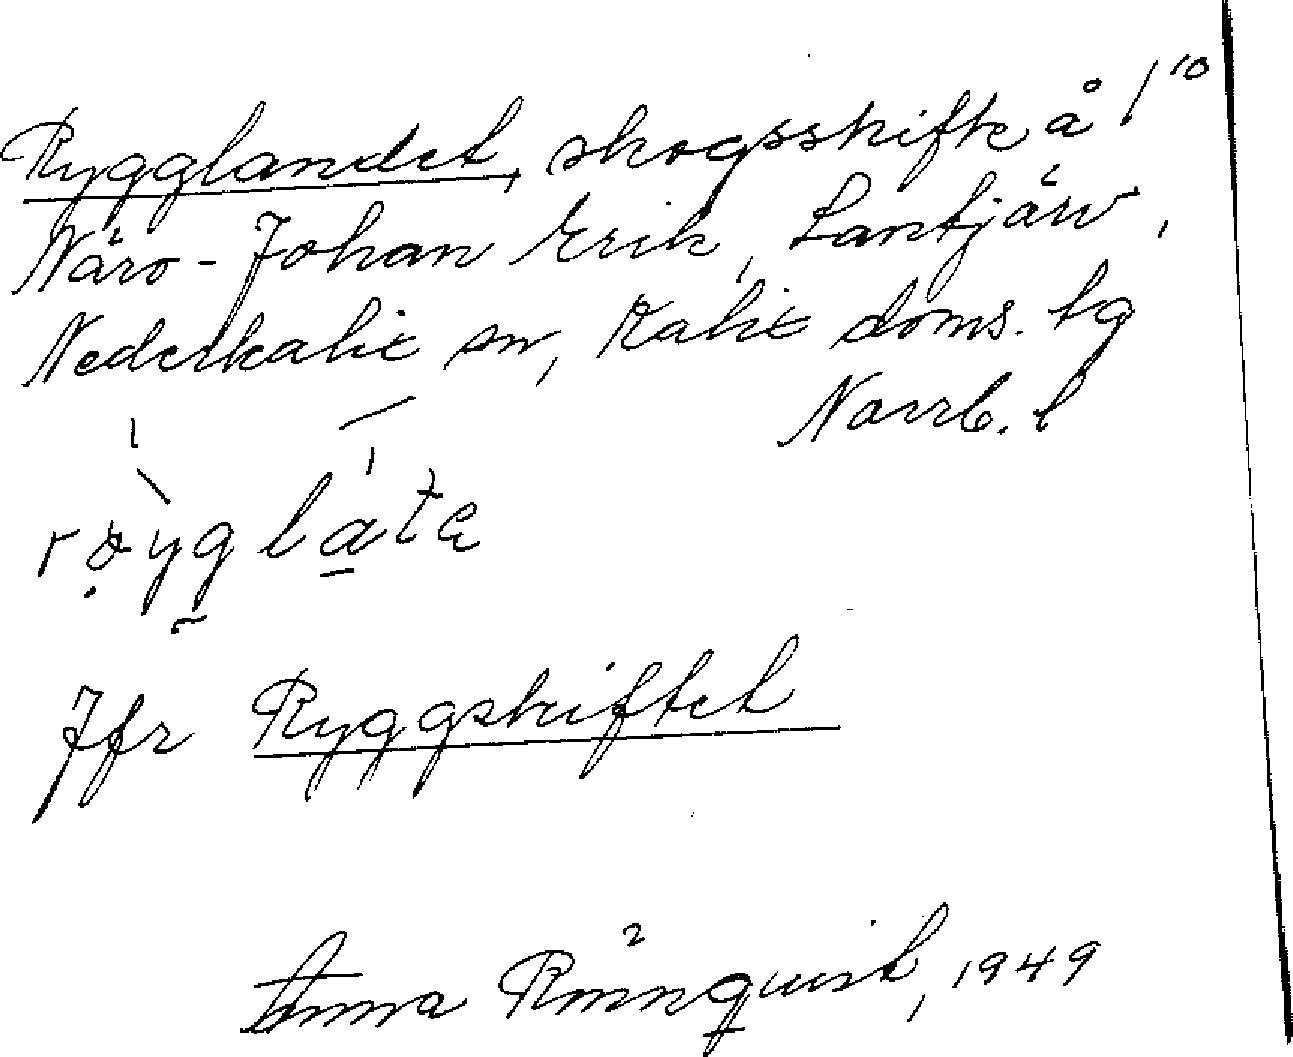 Rygglandet, skogsskifte å 1/10
Näro-Johan Erik, Lantjärv,
Nederkalix sn, Kalix doms. lg
Norrb. l
Jfr Ryggskiftet
Anna Rönnquist, 1949